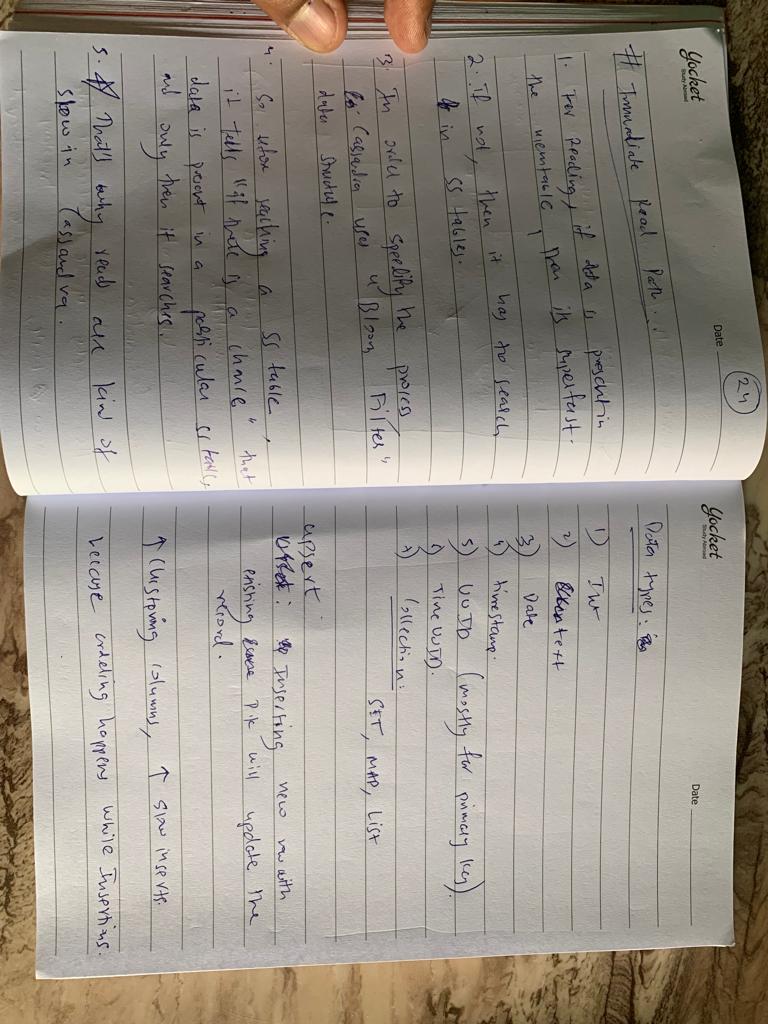 24
Date
Yocket
Study Abroad
# Immediate Read Path...
1. For Reading, if data is present in
the memtable, then its superfast.
2. If not, then it has to search
in SS tables.
3. In order to speedify the process,
Cassandra uses "Bloom Filter"
data structure.
4. So when seaching a SS table,
it tells "if there is a chance" that
data is present in a particular SS table,
and only then it searches.
5. That's why reads are kind of
slow in Cassandra.
Yocket
Study Abroad
Date
Data types:
1) Int
2) text
3) Date
4) timestamp.
5) UUID (mostly for primary key).
6) Time UUID.
7) Collection:
SET, MAP, LIST
upsert
: Inserting new row with
existing P.K will update the
record.
↑ Clustering columns, ↑ slow inserts.
because ordering happens while Inserting.